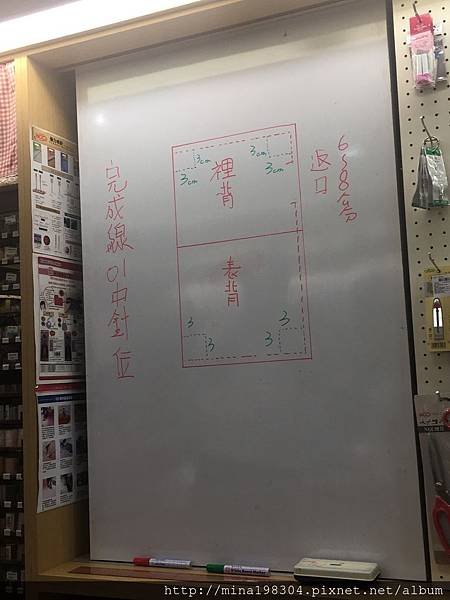 完成線01中針位
3cm
3cm
裡背
3cm
3cm
返口
6~8公分
表背
3
3
3
3
http://mina198304.pixnet.net/album